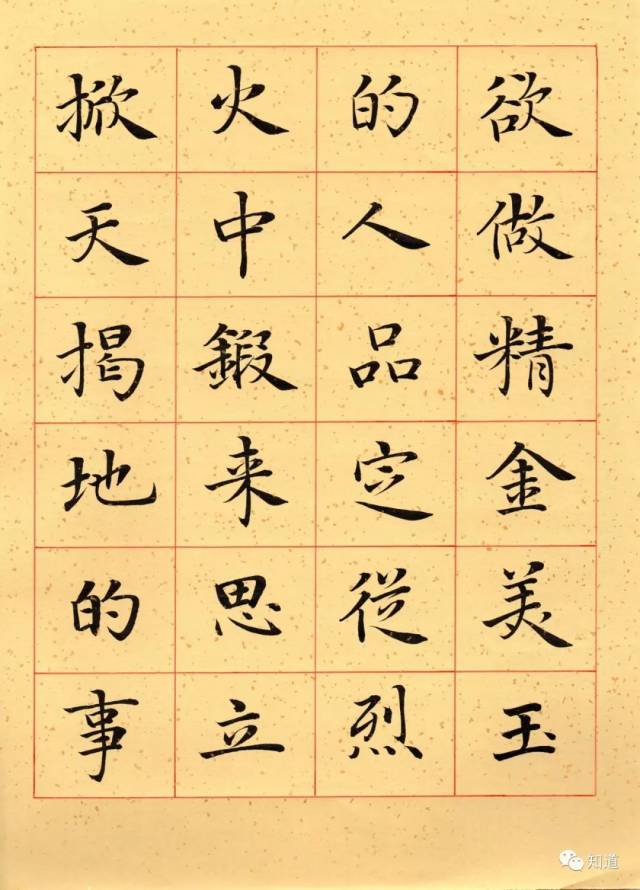 欲做精金美玉
的人品定從烈
火中鍛来思立
掀天揭地的事
知道